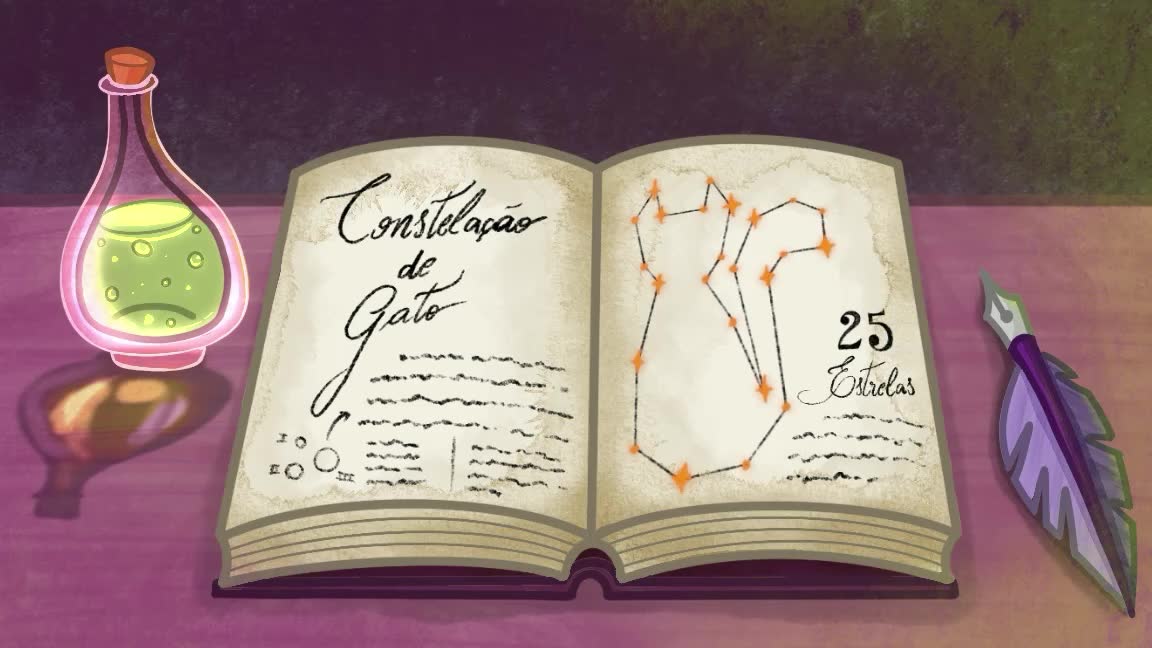 Constelação
de
Gato
I
II
III
25
Estrelas